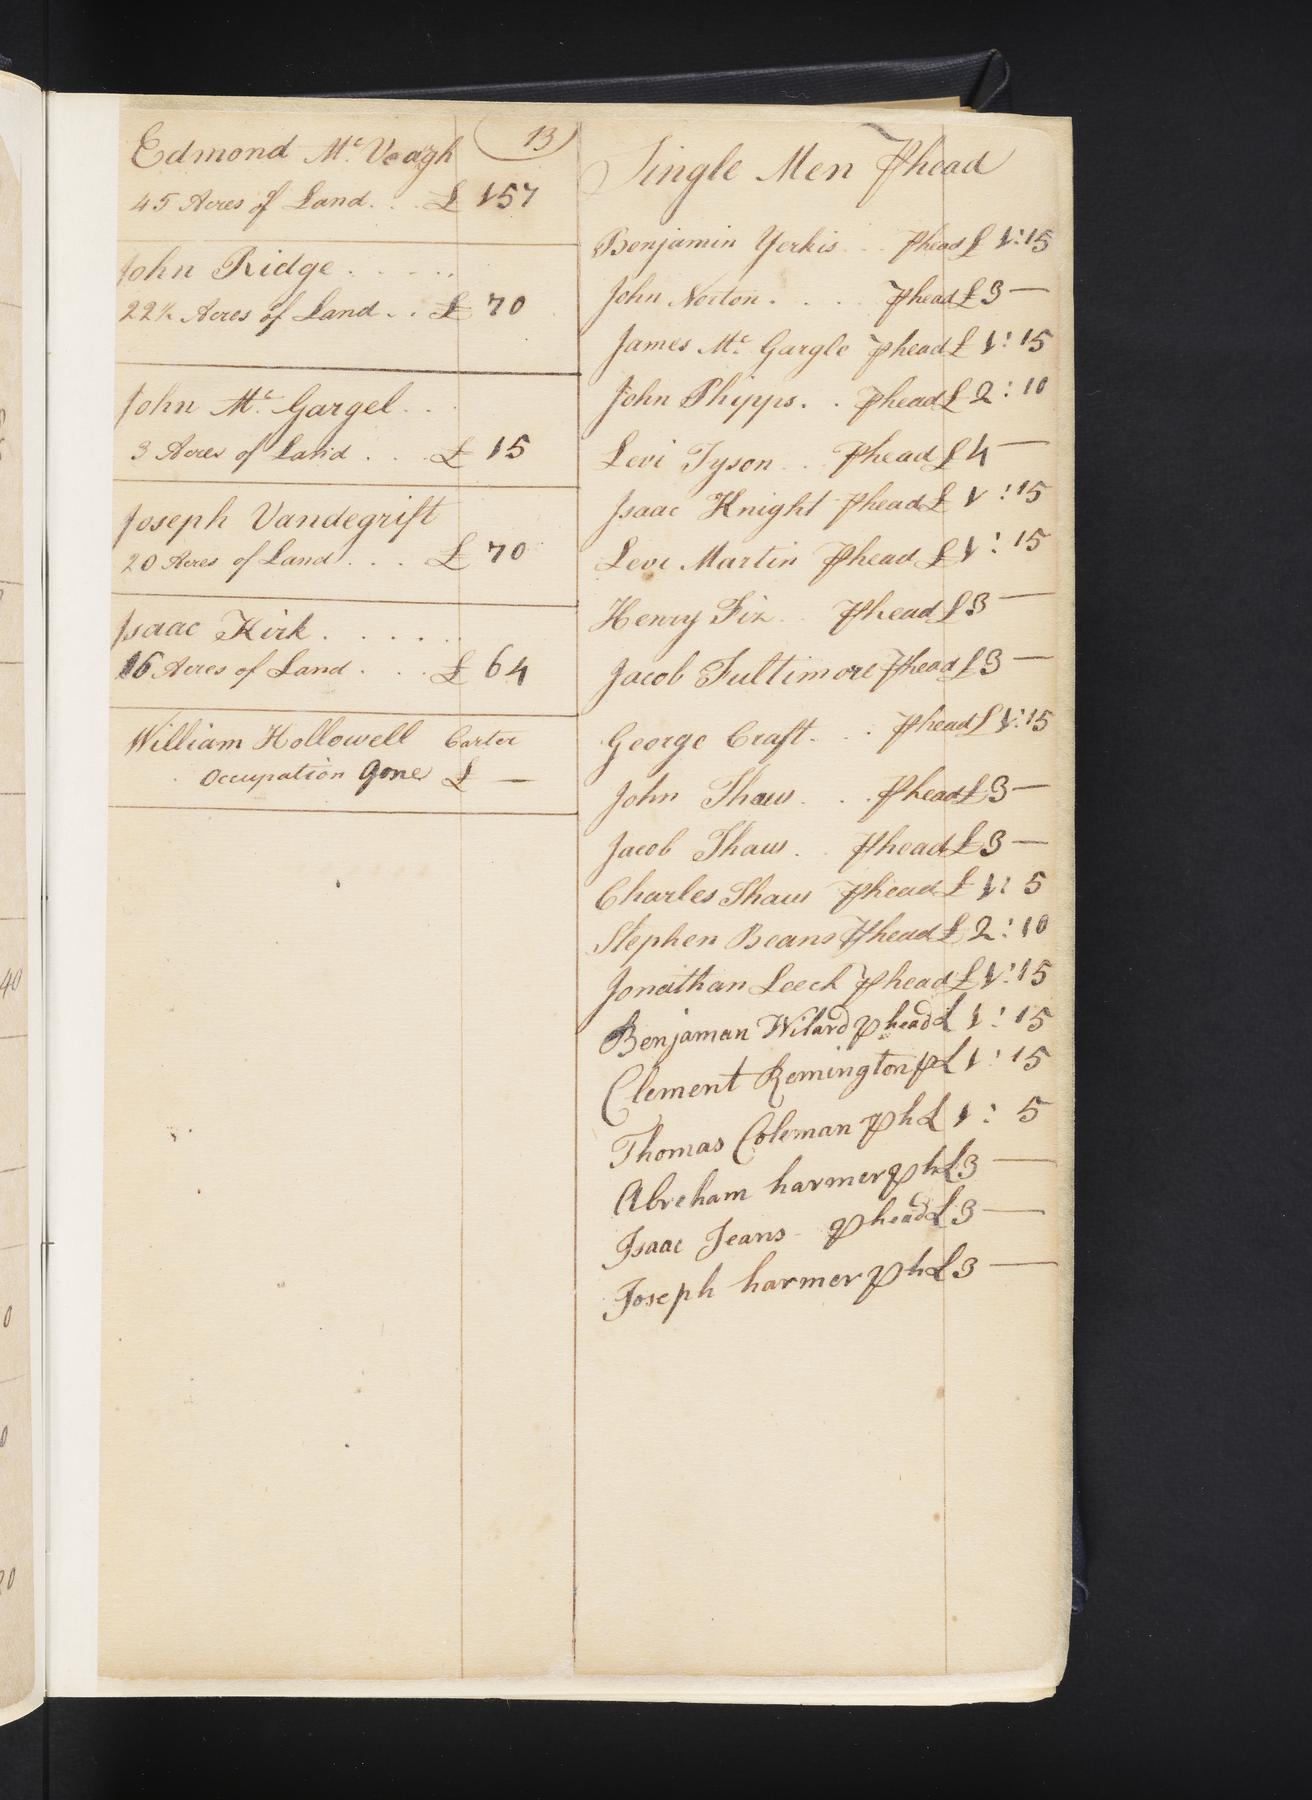 13
Edmond Mc Veagh
45 Acres of Land . . £ 157
John Ridge . . . . .
22½ Acres of Land . . £ 70
John Mc Gargel . .
3 Acres of Land . . . £ 15
Joseph Vandegrift
20 Acres of Land . . . £ 70
Isaac Kirk . . . . . .
16 Acres of Land . . . £ 64
William Hollowell Carter
Occupation Gone £ —
Single Men ⅌ head
Benjamin Yerkis . . ⅌ head £ 1:15
John Norton . . . . ⅌ head £ 3 —
James Mc Gargle ⅌ head £ 1:15
John Phipps . . ⅌ head £ 2:10
Levi Tyson . . ⅌ head £ 4 —
Isaac Knight ⅌ head £ 1:15
Levi Martin ⅌ head £ 1:15
Henry Fix . . ⅌ head £ 3 —
Jacob Fultimore ⅌ head £ 3 —
George Craft . . . ⅌ head £ 1:15
John Shaw . . . ⅌ head £ 3 —
Jacob Shaw . . ⅌ head £ 3 —
Charles Shaw ⅌ head £ 1:5
Stephen Beans ⅌ head £ 2:10
Jonathan Leech ⅌ head £ 1:15
Benjaman Wilard ⅌ head £ 1:15
Clement Remington ⅌ £ 1:15
Thomas Coleman ⅌ h £ 1:5
Abreham harmer ⅌ h £ 3 —
Isaac Jeans - ⅌ head £ 3 —
Joseph harmer ⅌ h £ 3 —